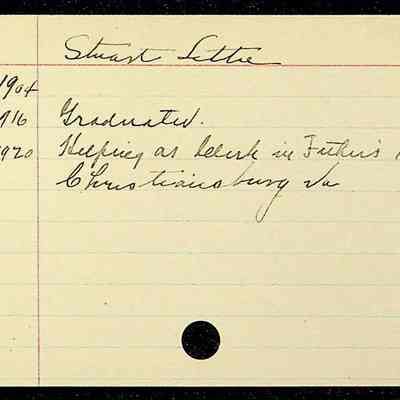 Stuart Lettie
1904
916 Graduated.
1920 Helping as Clerk in Father's
Christiansburg Va